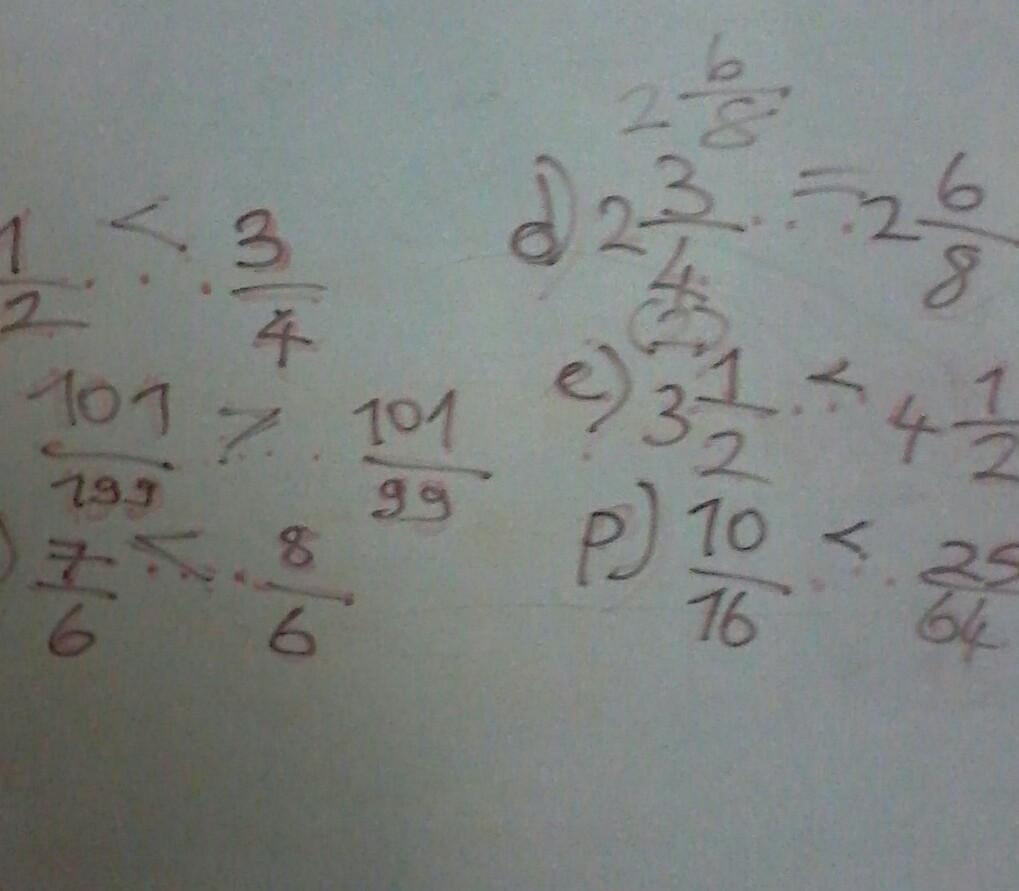 1/2 < 3/4
101/199 > 101/99
) 7/6 < 8/6
2 6/8
d) 2 3/4 = 2 6/8
(2)
e) 3 1/2 < 4 1/2
p) 10/16 < 25/64